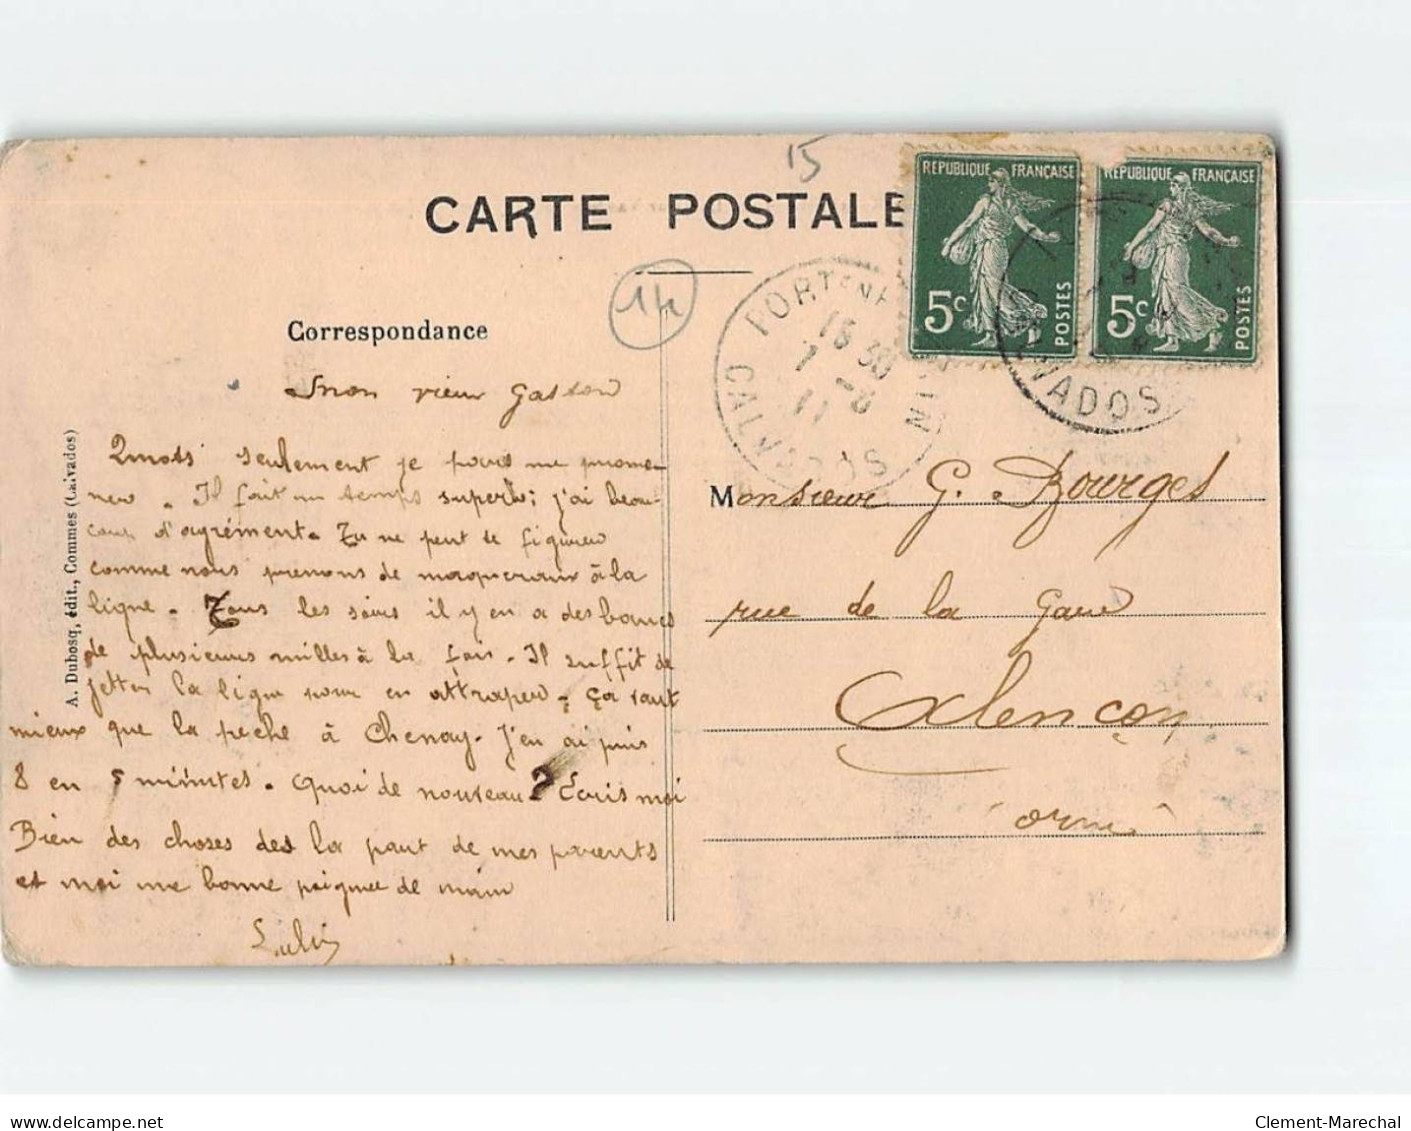 15
CARTE POSTALE
14
Correspondance
mon vieux Gaston
2 mots seulement je pars me prome-
ner. Il fait un temps superbe; j'ai beau-
coup d'agrément. Tu ne peut te figurer
comme nous prenons de maquereaux à la
ligne. Tous les soirs il y en a des bancs
de plusieurs milles à la fois. Il suffit de
jetter la ligne pour en attraper. ça vaut
mieux que la peche à Chenay. J'en ai pris
8 en 5 minutes. Quoi de nouveau? Ecris moi
Bien des choses de la part de mes parents
et moi une bonne poignee de main
A. Dubosq, édit., Commes (Calvados)
REPUBLIQUE FRANÇAISE
5c POSTES
REPUBLIQUE FRANÇAISE
5c POSTES
PORT EN
15 30
7 -8
11
CALVADOS
VADOS
Monsieur G. Bourges
rue de la Gare
Alençon
Orne
delcampe.net
Clement-Marechal